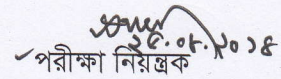 ২৫.০৮.২০১৪
পরীক্ষা নিয়ন্ত্রক